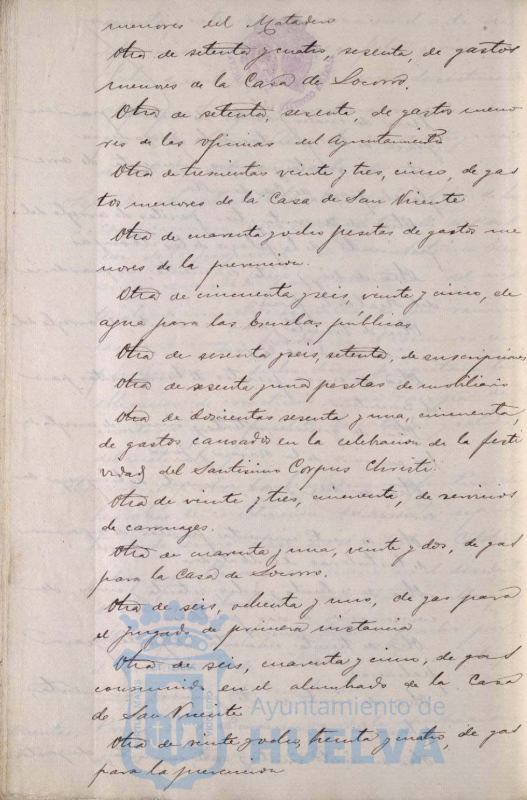 menores del Matadero
Otra de setenta y cuatro, sesenta, de gastos
menores de la Casa de Socorro.
Otra de setenta, sesenta, de gastos meno
res de las oficinas del Ayuntamiento
Otra de trescientas veinte y tres, cinco, de gas
tos menores de la Casa de San Vicente
Otra de cuarenta y ocho pesetas de gastos me
nores de la prevencion.
Otra de cincuenta y seis, veinte y cinco, de
agua para las Escuelas públicas.
Otra de sesenta y seis, setenta, de suscripciones
Otra de sesenta y una pesetas de mobiliario
Otra de doscientas sesenta y una, cincuenta,
de gastos causados en la celebracion de la festi
vidad del Santisimo Corpus Christi.
Otra de veinte y tres, cincuenta, de servicios
de carruages.
Otra de cuarenta y una, veinte y dos, de gas
para la Casa de Socorro.
Otra de seis, ochenta y uno, de gas para
el Juzgado de primera instancia
Otra de seis, cuarenta y cinco, de gas
consumido en el alumbrado de la Casa
de San Vicente
Otra de veinte y ocho, treinta y cuatro, de gas
para la prevencion
Ayuntamiento de
HUELVA